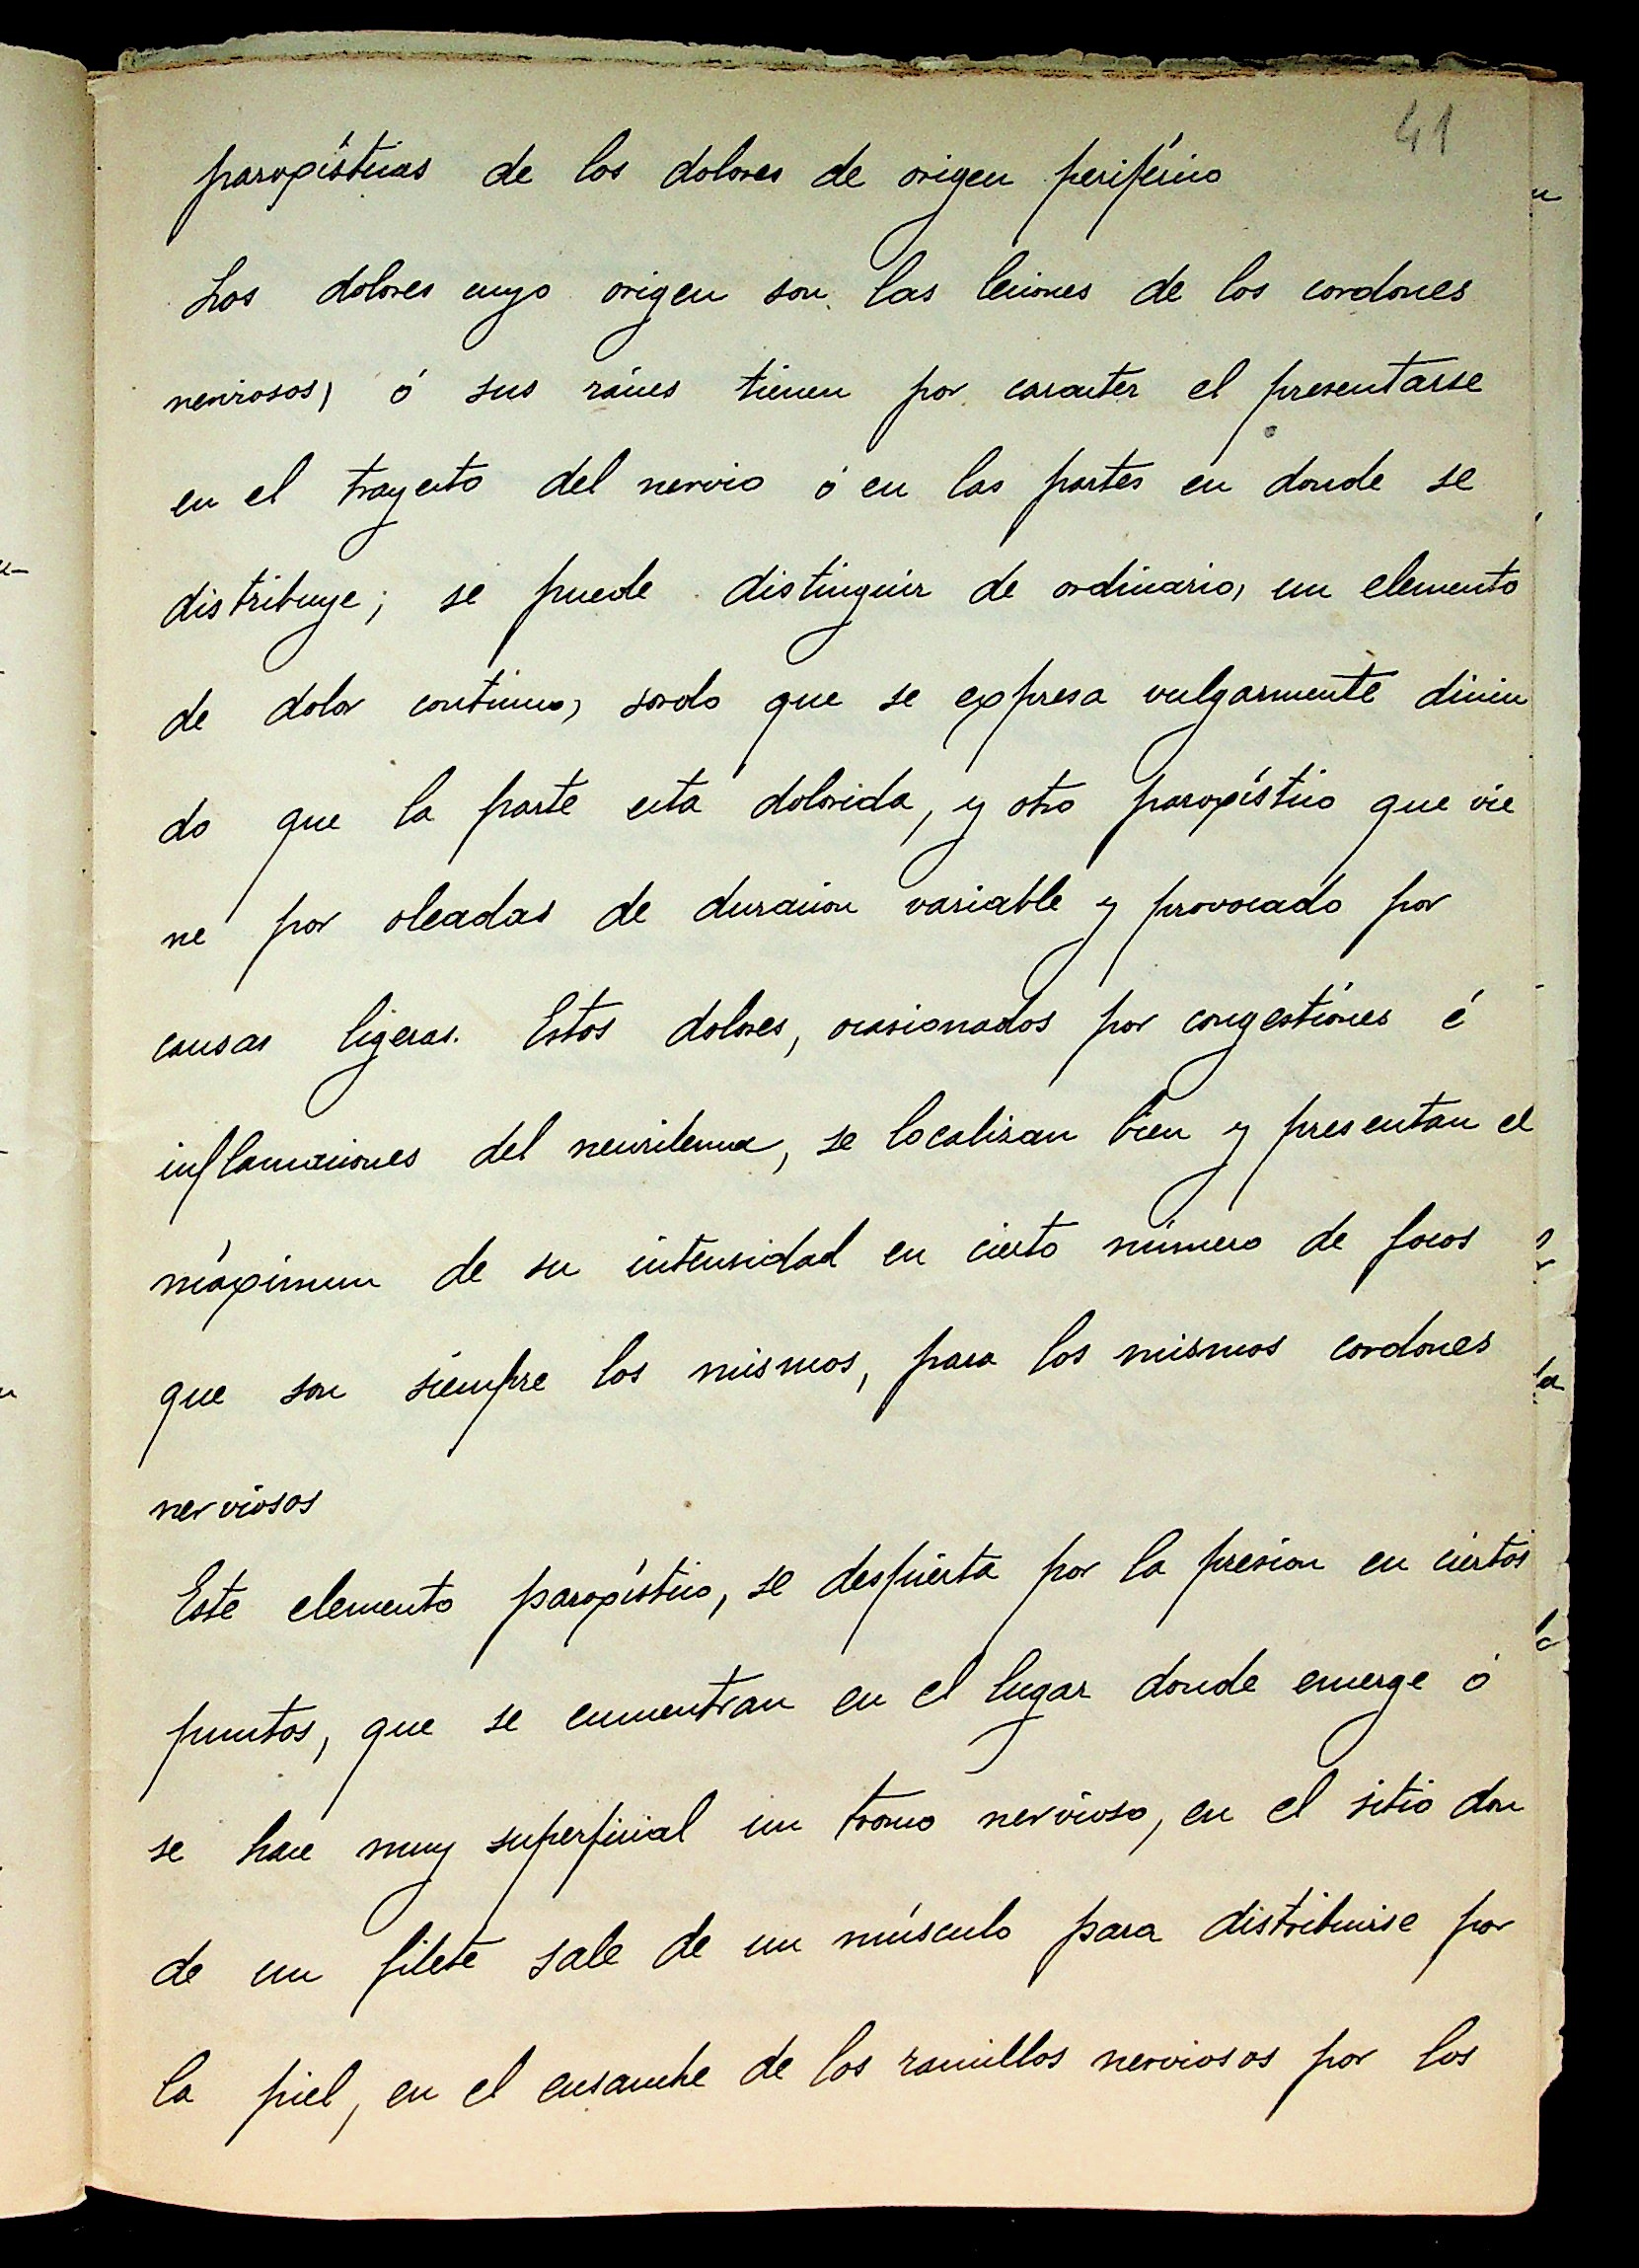 41
paroxísticas de los dolores de origen periférico
Los dolores cuyo origen son las lesiones de los cordones
nerviosos, ó sus raíces tienen por caracter el presentarse
en el trayecto del nervio ó en las partes en donde se
distribuye; se puede distinguir de ordinario, un elemento
de dolor continuo, sordo que se expresa vulgarmente dicien
do que la parte esta dolorida, y otro paroxístico que vie
ne por oleadas de duracion variable y provocado por
causas ligeras. Estos dolores, ocasionados por congestiones é
inflamaciones del neurilema, se localizan bien y presentan el
máximum de su intensidad en cierto número de focos
que son siempre los mismos, para los mismos cordones
nerviosos
Este elemento paroxístico, se despierta por la presion en ciertos
puntos, que se encuentran en el lugar donde emerge ó
se hace muy superficial un tronco nervioso, en el sitio don
de un filete sale de un músculo para distribuirse por
la piel, en el ensanche de los ramillos nerviosos por los